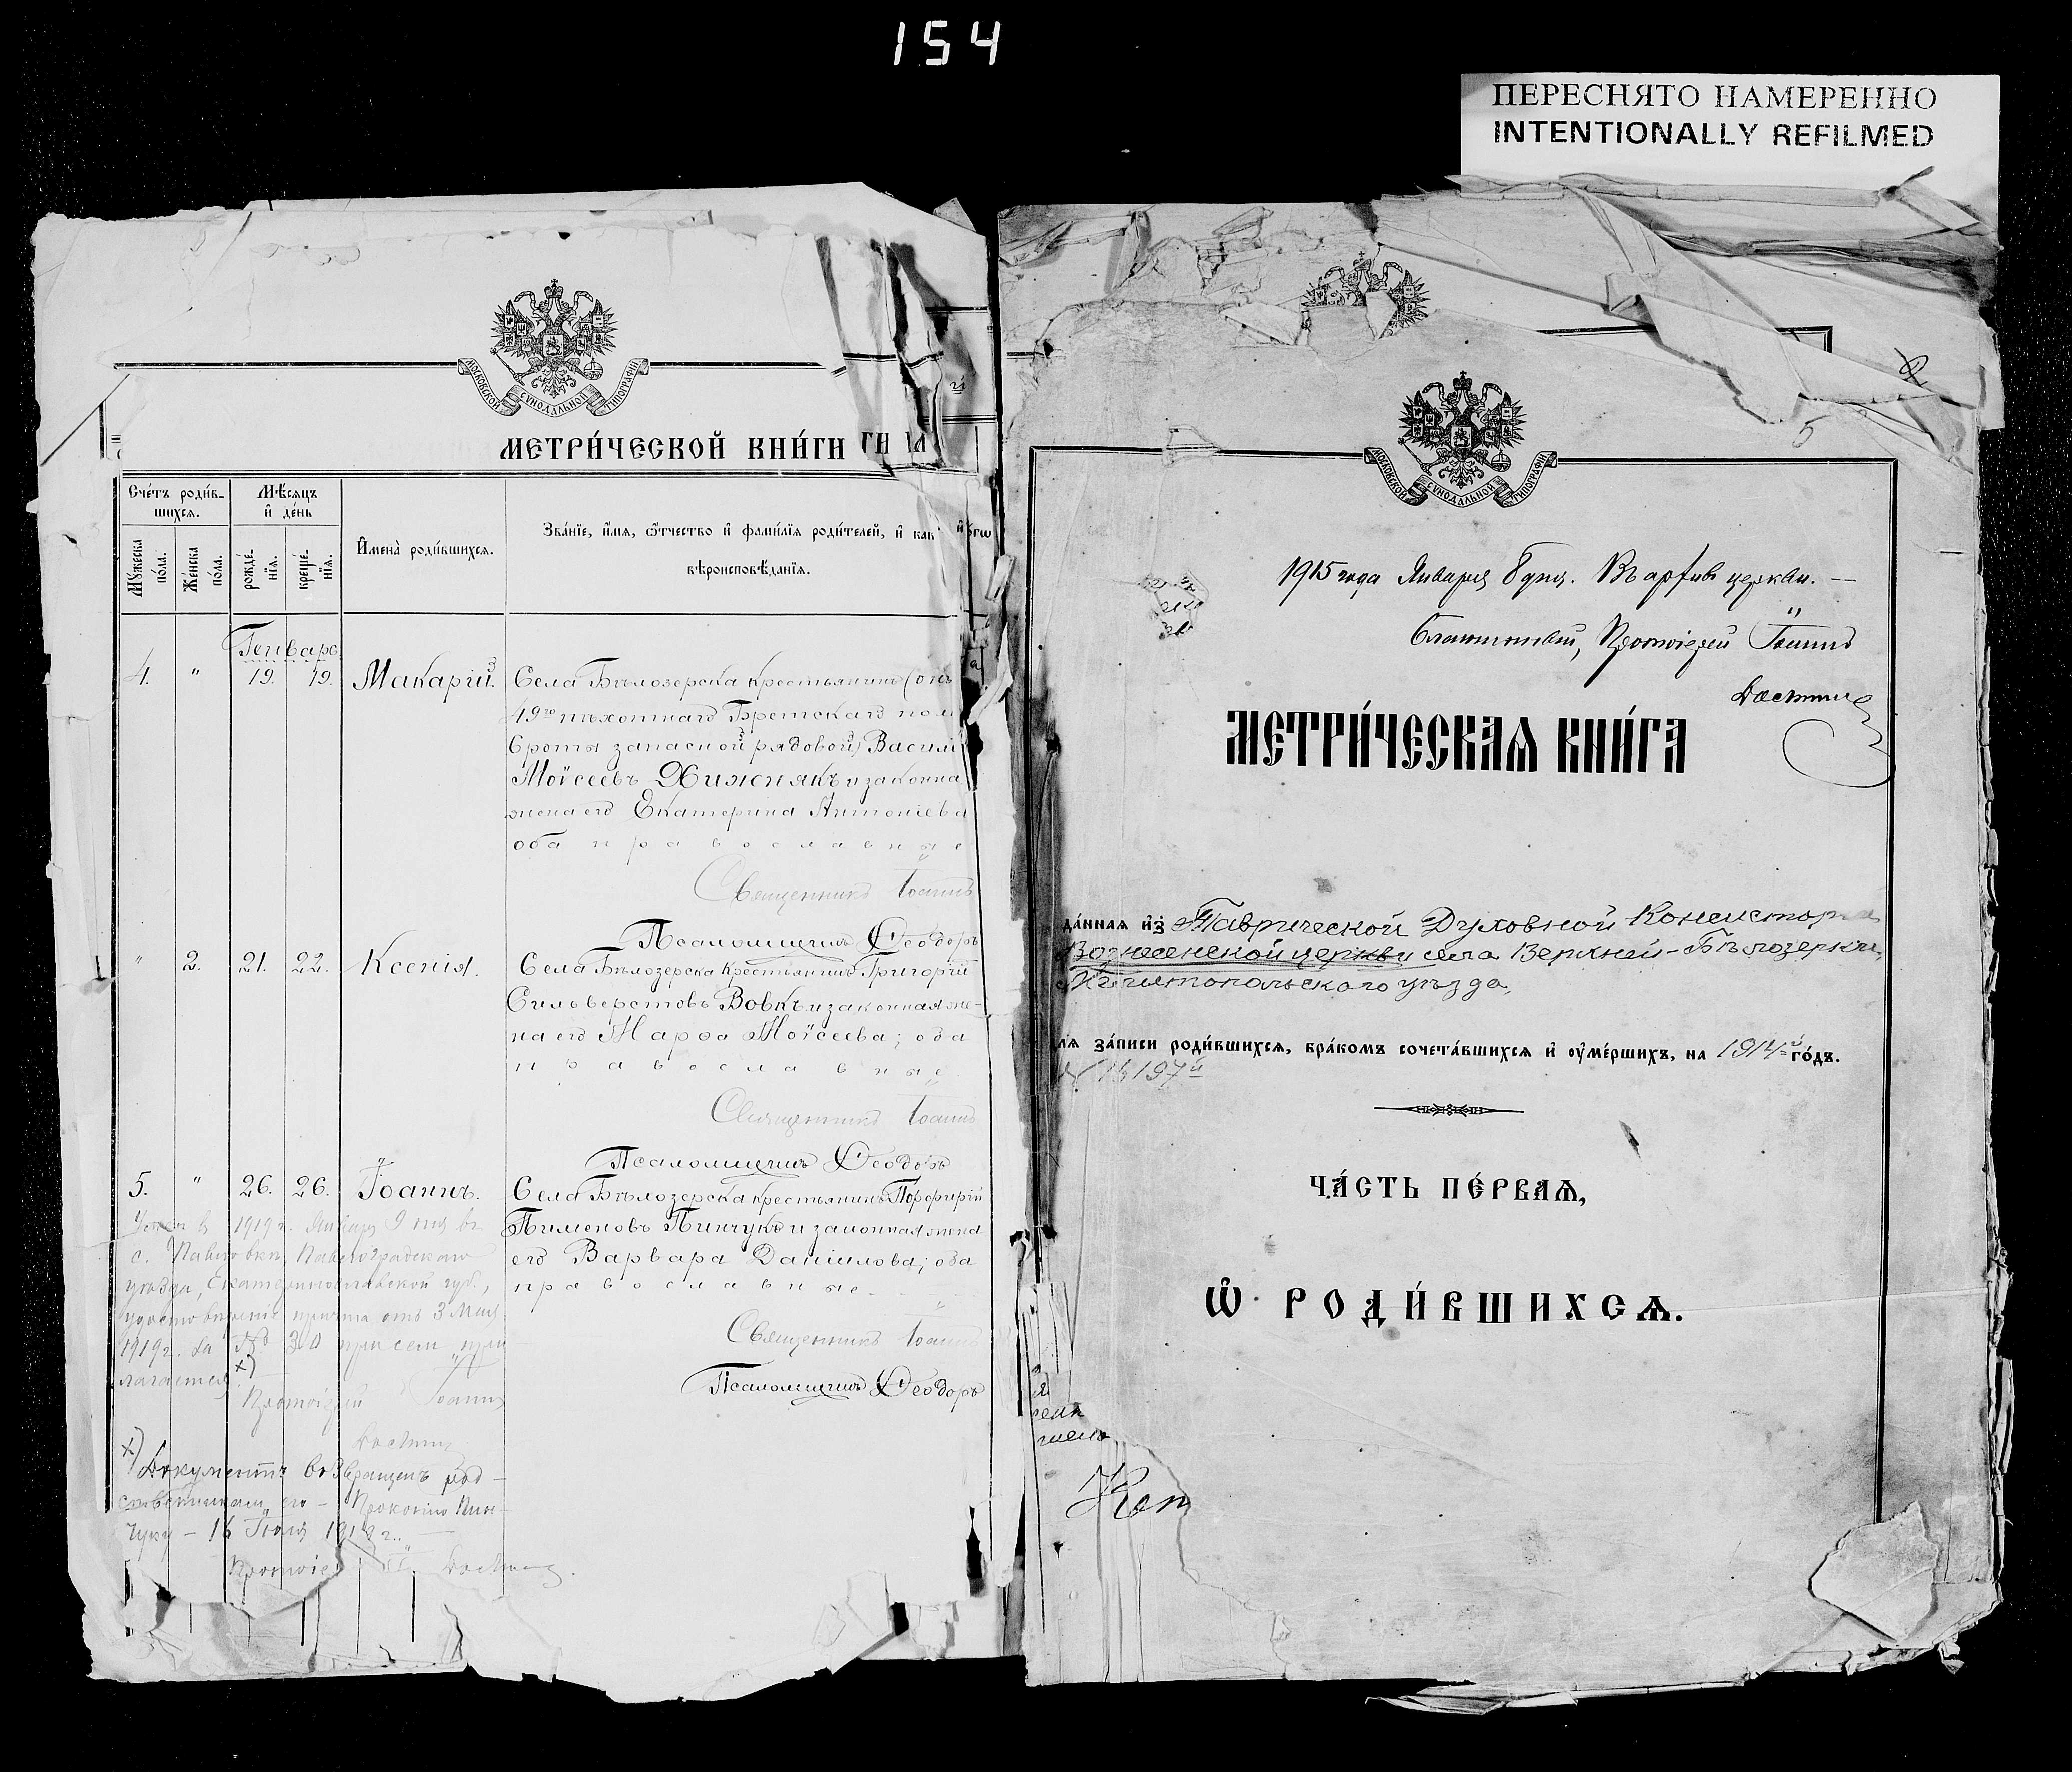 154
ПЕРЕСНЯТО НАМЕРЕННО
INTENTIONALLY REFILMED
МОСКОВСКОЙ СѴНОДАЛЬНОЙ ТИПОГРАФІИ
МЕТРИ́ЧЕСКОЙ КНИ́ГИ
Сче́тъ роди́в-
шихсѧ.
Мѣ́сѧцъ
и҆ де́нь
Мꙋ́жеска
по́ла.
Же́нска
по́ла.
рожде́-
нїѧ.
креще́-
нїѧ.
И҆мена̀ роди́вшихсѧ.
Зва́нїе, и҆́мѧ, ѻ҆́тчество и҆ фами́лїѧ роди́телей, и҆ как
вѣроисповѣ́данїѧ.
Генварь
1. " 19. 19. Макарій.
Села Бѣлозерска крестьянинъ (онъ
49го пѣхотнаго Брестскаго пол
6 роты запасной рядовой) Василі
Моѵсеевъ Хижнякъ и законна
жена его Екатерина Антоніева
оба православные
Священникъ Іоаннъ
Псаломщикъ Ѳеодоръ
" 2. 21. 22. Ксенія.
Села Бѣлозерска крестьянинъ Григорій
Сильверстовъ Вовкъ и законная же-
на его Марѳа Моѵсеева; оба
православные
Священникъ Іоаннъ
Псаломщикъ Ѳеодоръ
5. " 26. 26. Іоаннъ.
Села Бѣлозерска крестьянинъ Порфирій
Пименовъ Пинчукъ и законная жена
его Варвара Даніилова; оба
православные.
Священникъ Іоаннъ
Псаломщикъ Ѳеодоръ
1919 г. Январ 9 дня въ
с. Павловкѣ, Павлоградскаго
уѣзда, Екатеринославской губ.,
удостовѣреніе причта отъ 3 Мая
1919 г. за № 30 при семъ при-
лагается. х)
Протоіерей Іоаннъ
х) Документъ возвращенъ род-
ственникамъ его - Прокопію Пин-
чуку - 16 Іюля 1919 г. —
МОСКОВСКОЙ СѴНОДАЛЬНОЙ ТИПОГРАФІИ
5
1915 года Января 8 дня. Въ архивъ церкви. —
Протоіерей Іоаннъ
МЕТРИ́ЧЕСКАѦ КНИ́ГА
да́ннаѧ и҆з̾ Таврической Духовной Консисторіи
Вознесенской церкви села Верхней-Бѣлозерки,
Мелитопольскаго уѣзда,
лѧ за́писи роди́вшихсѧ, бра́комъ сочета́вшихсѧ и҆ ᲂу҆ме́ршихъ, на 1914-й го́дъ.
ЧА́СТЬ ПЕ́РВАѦ,
Ѽ РОДИ́ВШИХСѦ.